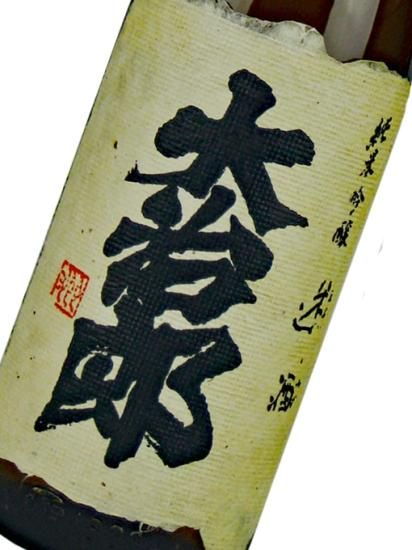 純米吟醸 迯酒
大治郎